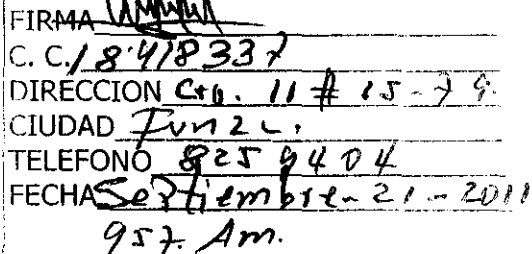 FIRMA
C. C. 18'418337
DIRECCION Cra. 11 # 15-79
CIUDAD Funza.
TELEFONO 8259404
FECHA Septiembre-21-2011
957. Am.